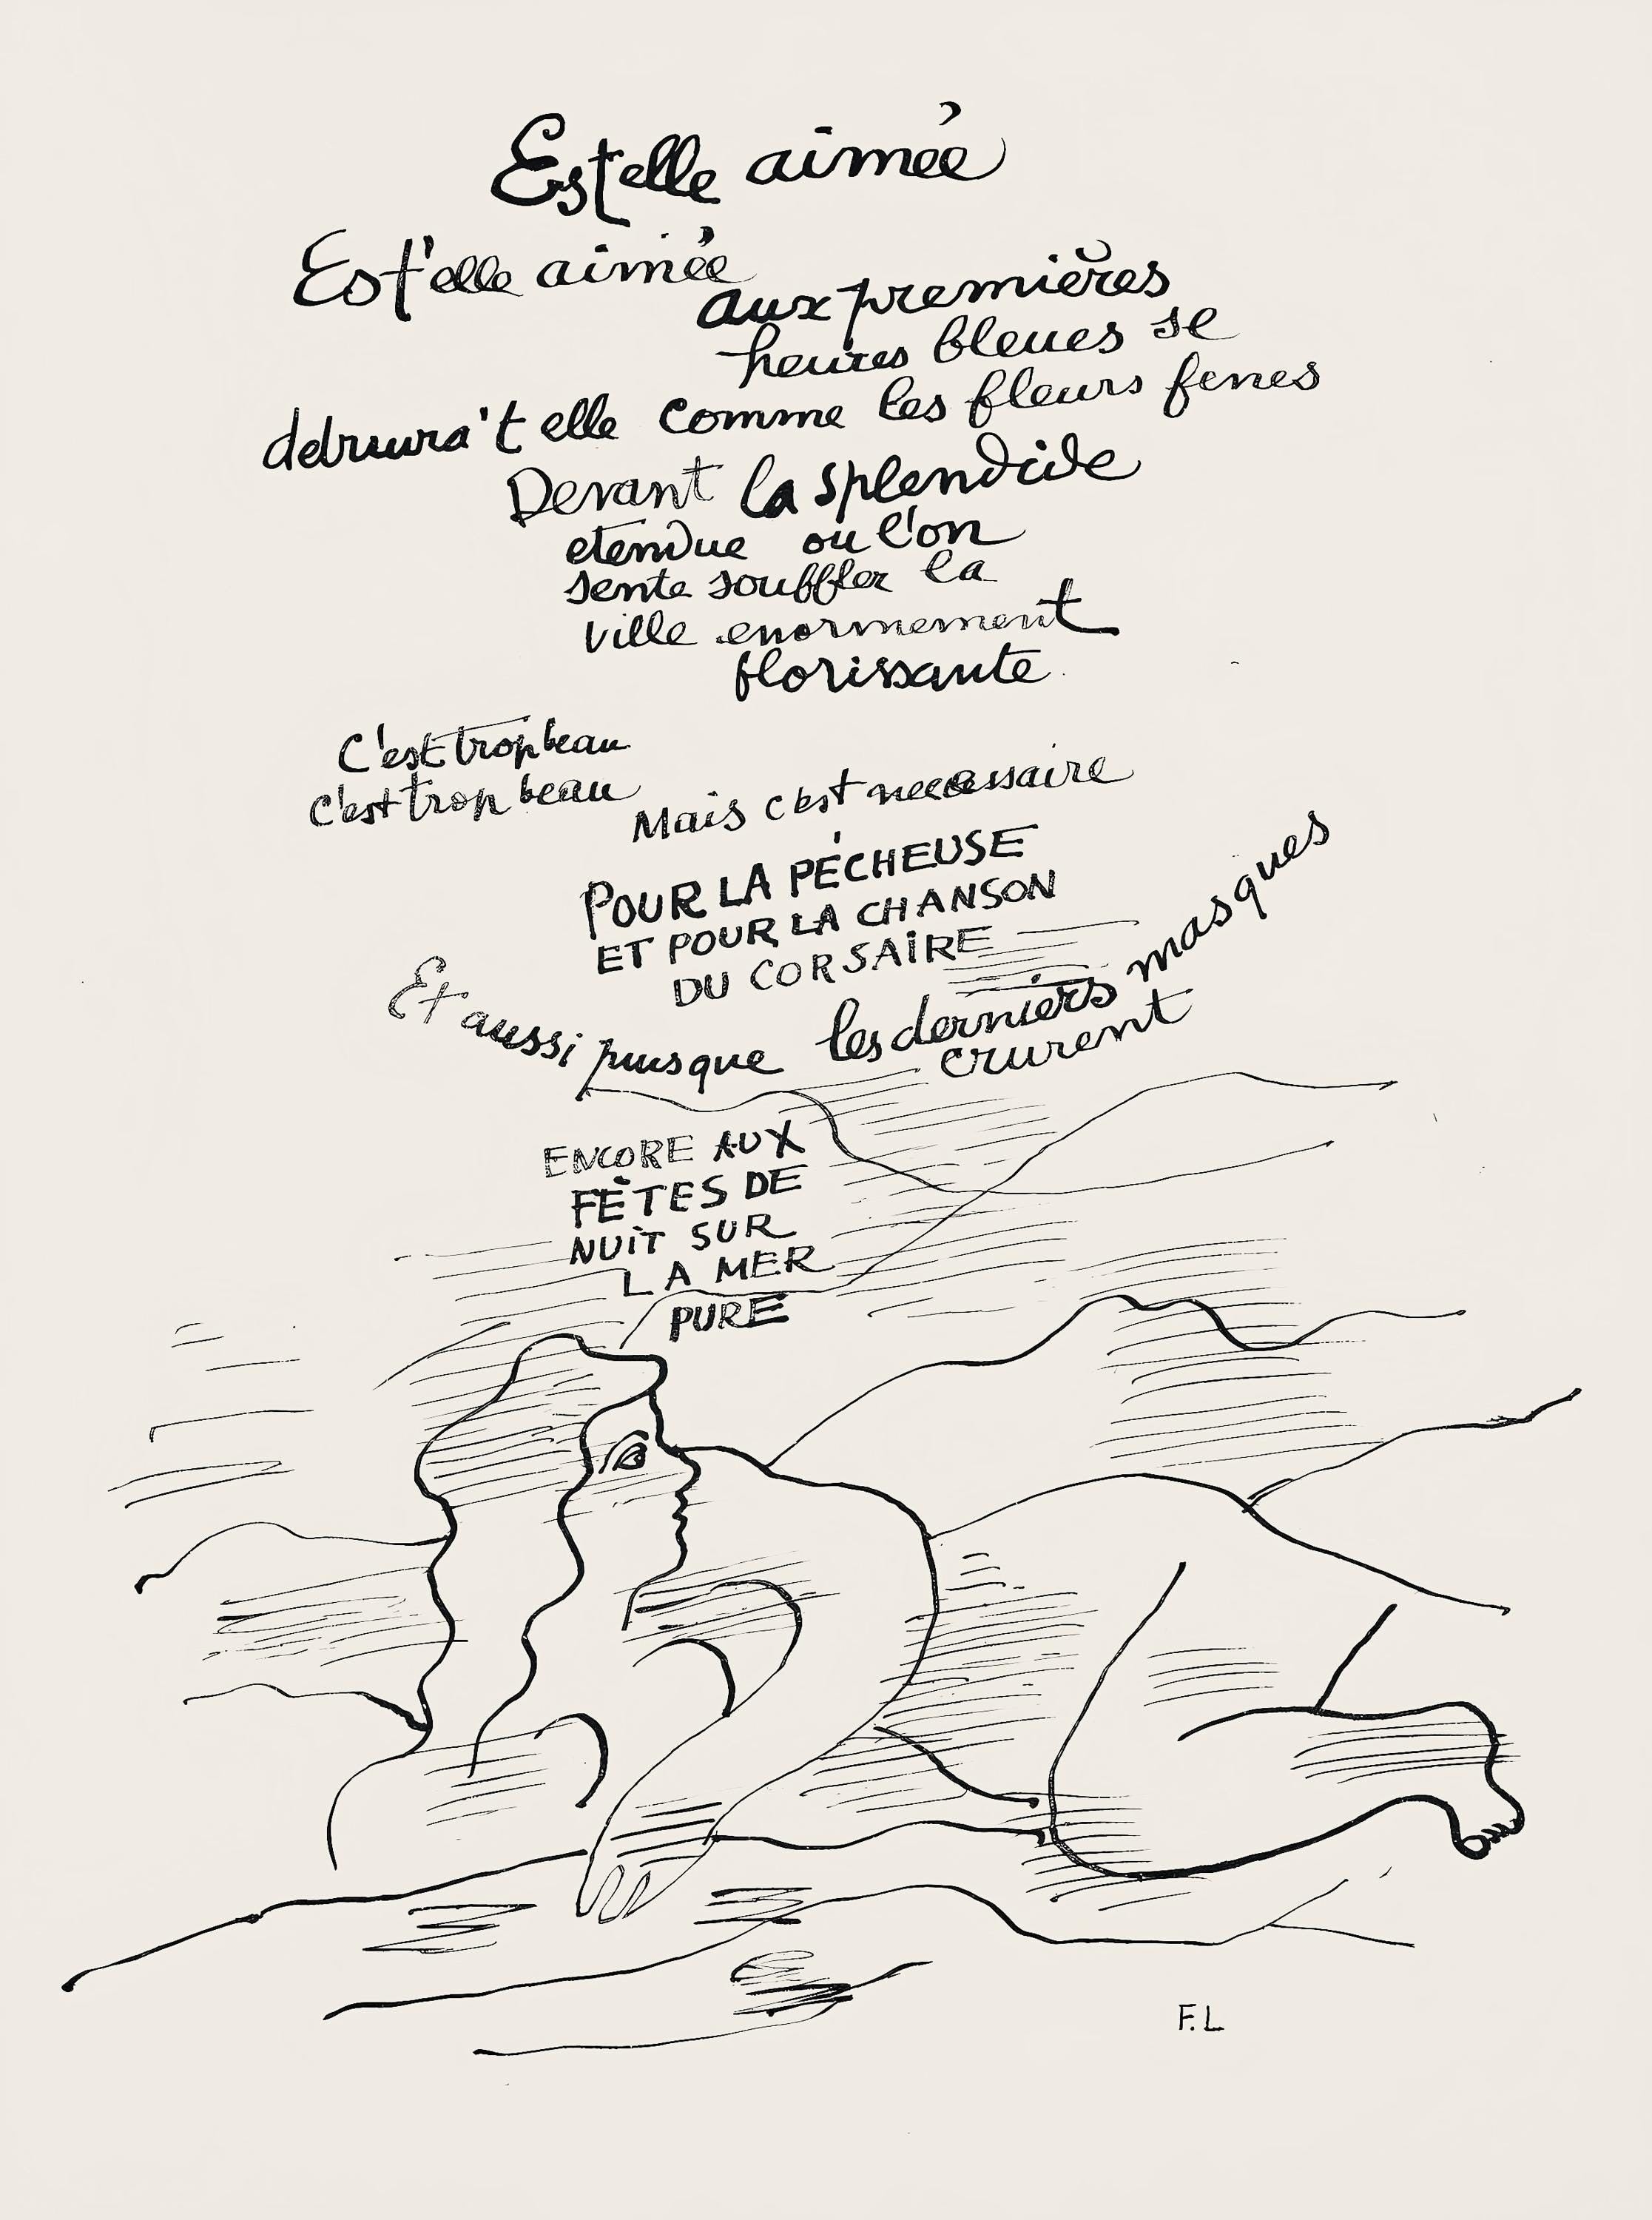 Est elle aimée
Est'elle aimée
aux premières
heures bleues se
detruira't elle comme les fleurs feues
Devant la splendide
etendue ou l'on
sente souffler la
ville enormement
florissante
C'est trop beau
C'est trop beau
Mais c'est necessaire
POUR LA PÉCHEUSE
ET POUR LA CHANSON
DU CORSAIRE
Et aussi puisque les derniers masques
crurent
ENCORE AUX
FÊTES DE
NUIT SUR
LA MER
PURE
F.L